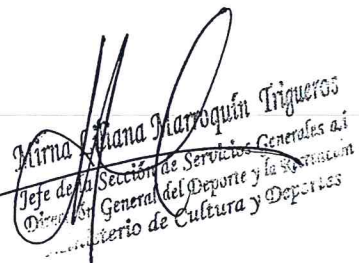 Mirna Liliana Marroquín Trigueros
Jefe de la Sección de Servicios Generales a.i
Dirección General del Deporte y la Recreación
Ministerio de Cultura y Deportes